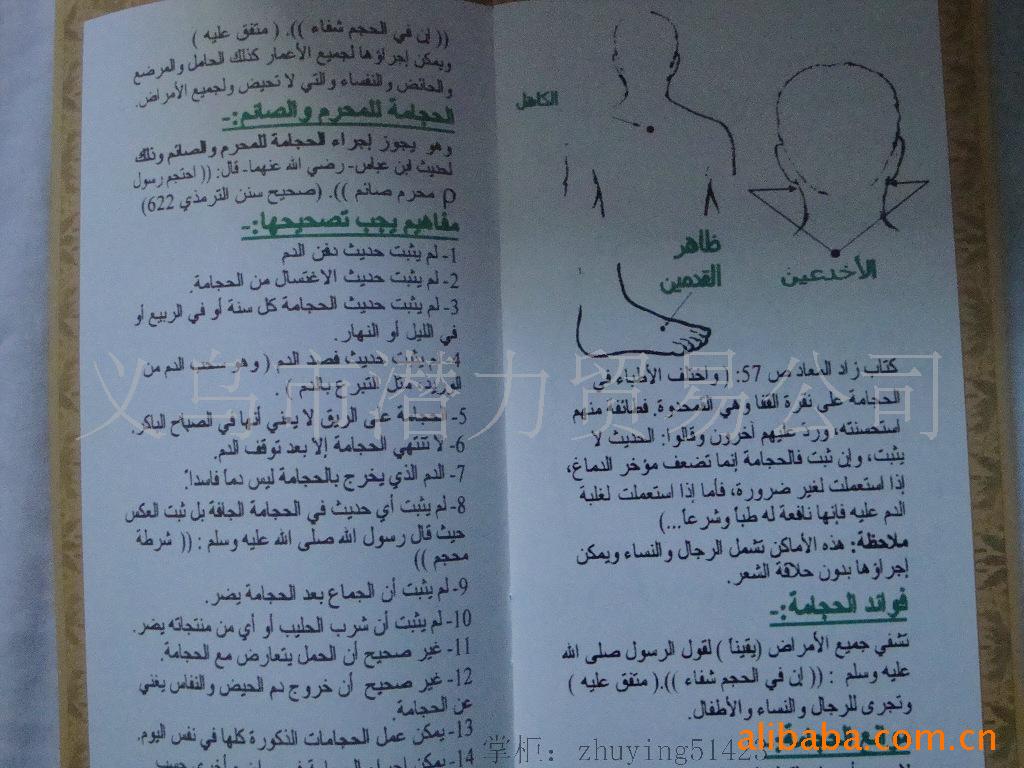 الكاهل
الأخدعين
ظاهر
القدمين
كتاب زاد المعاد ص 57: ( واختلف الأطباء في
الحجامة على نقرة القفا وهي القمحدوة. فطائفة منهم
استحسنته، ورد عليهم آخرون وقالوا: الحديث لا
يثبت، وإن ثبت فالحجامة إنما تضعف مؤخر الدماغ،
إذا استعملت لغير ضرورة، فأما إذا استعملت لغلبة
الدم عليه فإنها نافعة له طباً وشرعاً...)
ملاحظة: هذه الأماكن تشمل الرجال والنساء ويمكن
إجراؤها بدون حلاقة الشعر.
فوائد الحجامة:-
تشفي جميع الأمراض (يقيناً ) لقول الرسول صلى الله
عليه وسلم : (( إن في الحجم شفاء )).( متفق عليه )
وتجرى للرجال والنساء والأطفال.
(( إن في الحجم شفاء )). ( متفق عليه )
ويمكن إجراؤها لجميع الأعمار كذلك الحامل والمرضع
والحائض والنفساء والتي لا تحيض ولجميع الأمراض.
الحجامة للمحرم والصائم:-
وهو يجوز إجراء الحجامة للمحرم والصائم وذلك
لحديث ابن عباس- رضي الله عنهما- قال: (( احتجم رسول
ρ محرم صائم )). (صحيح سنن الترمذي 622)
مفاهيم يجب تصحيحها:-
1- لم يثبت حديث دفن الدم
2- لم يثبت حديث الاغتسال من الحجامة.
3- لم يثبت حديث الحجامة كل سنة أو في الربيع أو
في الليل أو النهار.
4- لم يثبت حديث فصد الدم ( وهو سحب الدم من
الوريد. مثل التبرع بالدم ) .
5- الحجامة على الريق لا يعني أنها في الصباح الباكر.
6- لا تنتهي الحجامة إلا بعد توقف الدم.
7- الدم الذي يخرج بالحجامة ليس دماً فاسداً.
8- لم يثبت أي حديث في الحجامة الجافة بل ثبت العكس
حيث قال رسول الله صلى الله عليه وسلم : (( شرطة
محجم ))
9- لم يثبت أن الجماع بعد الحجامة يضر.
10- لم يثبت أن شرب الحليب أو أي من منتجاته يضر.
11- غير صحيح أن الحمل يتعارض مع الحجامة.
12- غير صحيح أن خروج دم الحيض والنفاس يغني
عن الحجامة.
13- يمكن عمل الحجامات المذكورة كلها في نفس اليوم.
14- يمكن إجراء الحجامة
义乌市潜力贸易公司
掌柜: zhuying51425
alibaba.com.cn